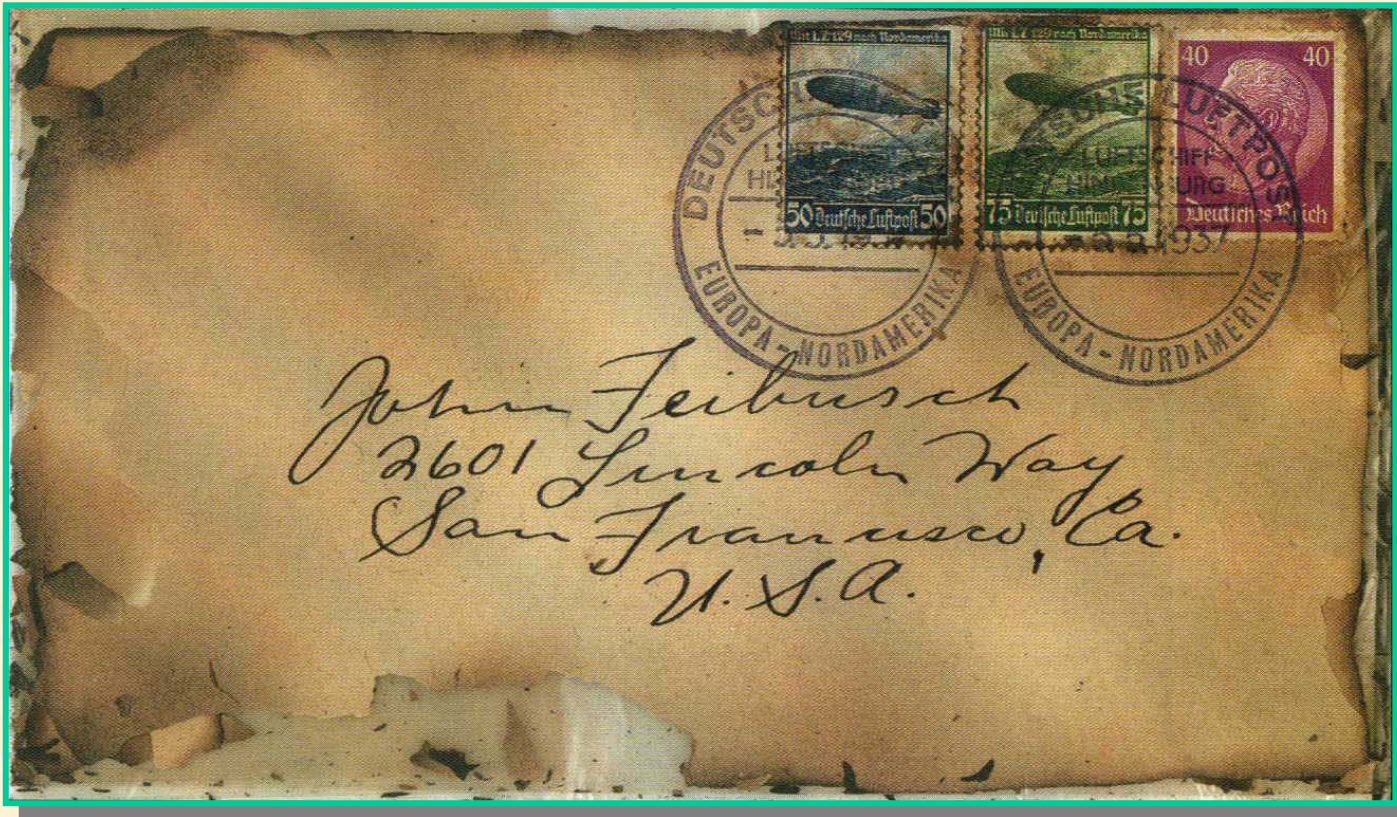 Mit LZ 129 nach Nordamerika
50 Deutsche Luftpost 50
Mit LZ 129 nach Nordamerika
75 Deutsche Luftpost 75
40 40
Deutsches Reich
DEUTSCHE
EUROPA - NORDAMERIKA
LUFTPOST
LUFTSCHIFF
5.1937
EUROPA - NORDAMERIKA
John Feibusch
2601 Lincoln Way
San Francisco, Ca.
U.S.A.